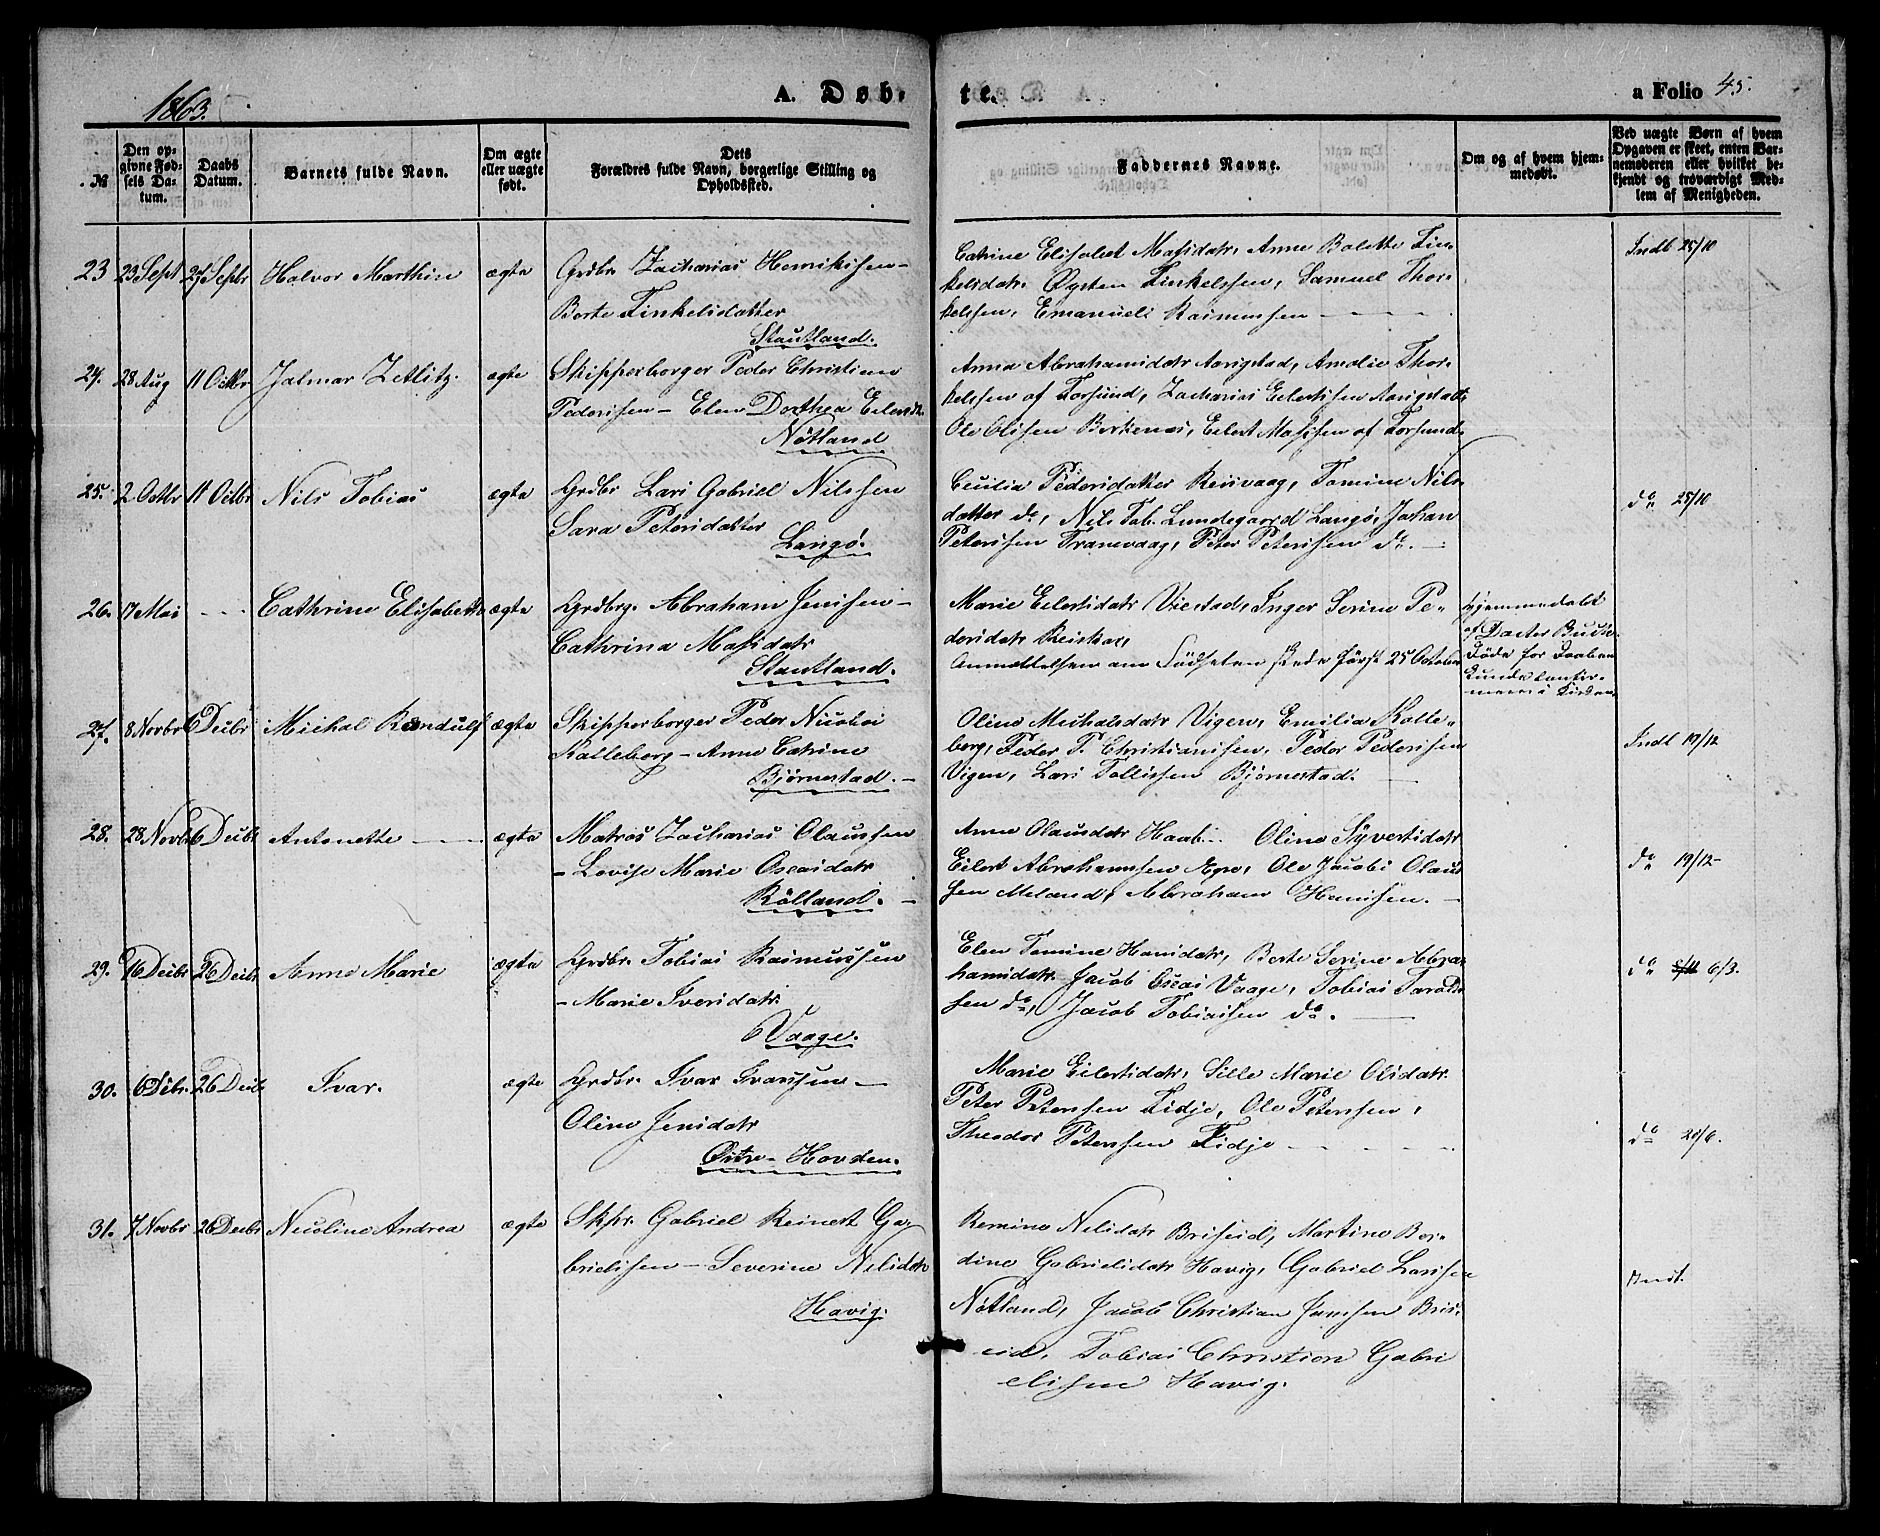 1863.
A. Døb-
te.
a Folio 45.
№
Den op-
givne Fød-
sels Da-
tum.
Daabs
Datum.
Barnets fulde Navn.
Om ægte
eller uægte
født.
Dets
Forældres fulde Navn, borgerlige Stilling og
Opholdssted.
Faddernes Navne.
Om og af hvem hjem-
medøbt.
Ved uægte Børn af hvem
Opgaven er skeet, enten Bar-
nemoderen eller hvilket be-
kjendt og troværdigt Med-
lem af Menigheden.
23 23 Sept 27 Septbr Halvor Marthin ægte Grdbr. Zacharias Henriksen -
Berte Tinkelsdatter
Stautland.
Catrine Elisabet Masidatr, Anne Bolette Tin-
kelsdatr. Øysten Tinkelssen, Samuel Thor-
kelssen, Emanuels Rasmussen
Indb 25/10
24. 28 Aug 11 Octbr Jalmar Zetlitz. ægte Skipperborger Peder Christian
Pedersen - Elen Dorthea Eilendt.
Nötland
Anna Abrahamsdatr Aarigstad, Amalie Thor-
kelssen af Farsund, Zacharias Eilertsen Aarigstad
Ole Olsen Birkenes, Eilert Massen af Farsund.
25. 2 Octbr 11 Octbr Nils Tobias ægte Grdbr Lars Gabriel Nilssen
Sara Petersdatter
Langö.
Cecilia Pedersdatter Revsvaag, Tomine Nils
datter do, Nils Tob. Lundegaard Langö, Johan
Peterssen Tranevaag, Peter Peterssen do. -
do 25/10
26. 17 Mai - - - Cathrine Elisabeth ægte Grdbrg. Abraham Jenssen -
Cathrina Masdatr
Stautland.
Marie Eilertsdatr Viestad, Inger Serine Pe-
dersdatr Reiskar,
Anmeldelsen om Födselen skede först 25 October
Hjemmedøbt
af Docter
Döde for Daaben
kunde
27. 8 Novbr 6 Decbr Michal Randulf ægte Skipperborger Peder Nicolai
Kalleberg - Anne Catrine
Bjørnestad. -
Oline Michalsdatr Vigen, Emilia Kalle-
berg, Peder P. Christiansen, Peder Pedersen
Vigen, Lars Tollissen Bjørnestad. -
Indl 19/12
28. 28 Novbr 6 Decbr Antonette ægte Matros Zacharias Olaussen
- Lovise Marie Oseasdatr
Rölland. -
Anne Olausdatr Haab. - Oline Syvertsdatr
Eilert Abrahamsen Egre, Ole Jacobs Olaus
sen Meland, Abraham Hansen. -
do 19/12 -
29. 16 Decbr 26 Decbr Anne Marie ægte Grdbr. Tobias Rasmussen
- Marie Iversdatr
Vaage.
Elen Tomine Hansdatr, Berte Serine Abra
hamsdatr Jacob Oseas Vaage, Tobias Tarald
sen do, Jacob Tobiassen do. -
do 6/3.
30. 6 Dcbr. 26 Decbr Ivar. ægte Grdbr. Ivar Ivarssen -
Oline Jensdatr
Östre - Hovden.
Marie Eilertsdatr, Sille Marie Olsdatr.
Peter Peterssen Lidje, Ole Peterssen,
Theodor Peterssen Lidje - - - -
do 20/6.
31. 7 Novbr 26 Decbr Nicoline Andrea ægte Skpr. Gabriel Reinert Ga-
brielssen - Severine Nilsdatr
Havig.
Remine Nilsdatr Briseid, Martine Ber-
dine Gabrielsdatr Havig, Gabriel Larssen
Nötland, Jacob Christian Jenssen Bris-
eid, Tobias Christian Gabri
elssen Havig.